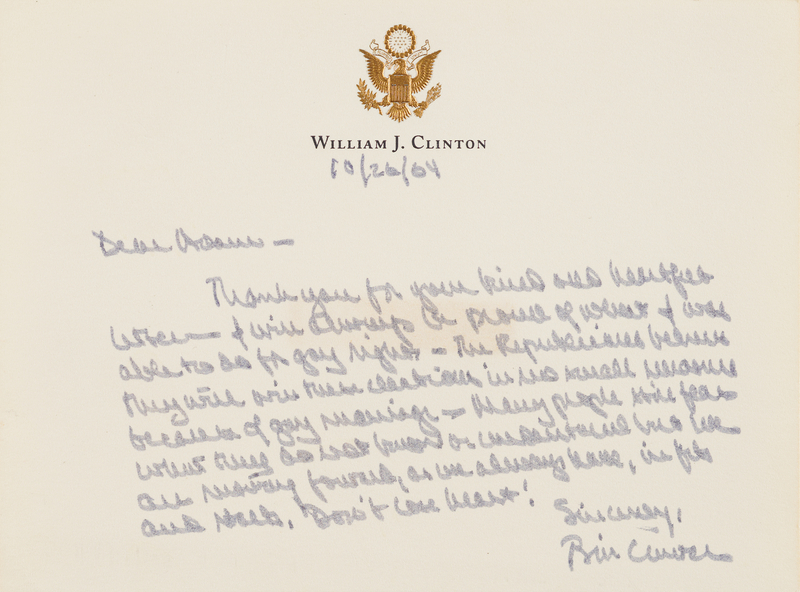 WILLIAM J. CLINTON
10/26/04
Dear Adam —
Thank you for your kind and heartfelt
letter — I will always be proud of what I was
able to do for gay rights — The Republicans believe
they will win these elections in no small measure
because of gay marriage — Many people still fear
what they do not know or understand but we
are moving forward, as we always have, in fits
and starts. Don't lose heart!
Sincerely,
Bill Clinton